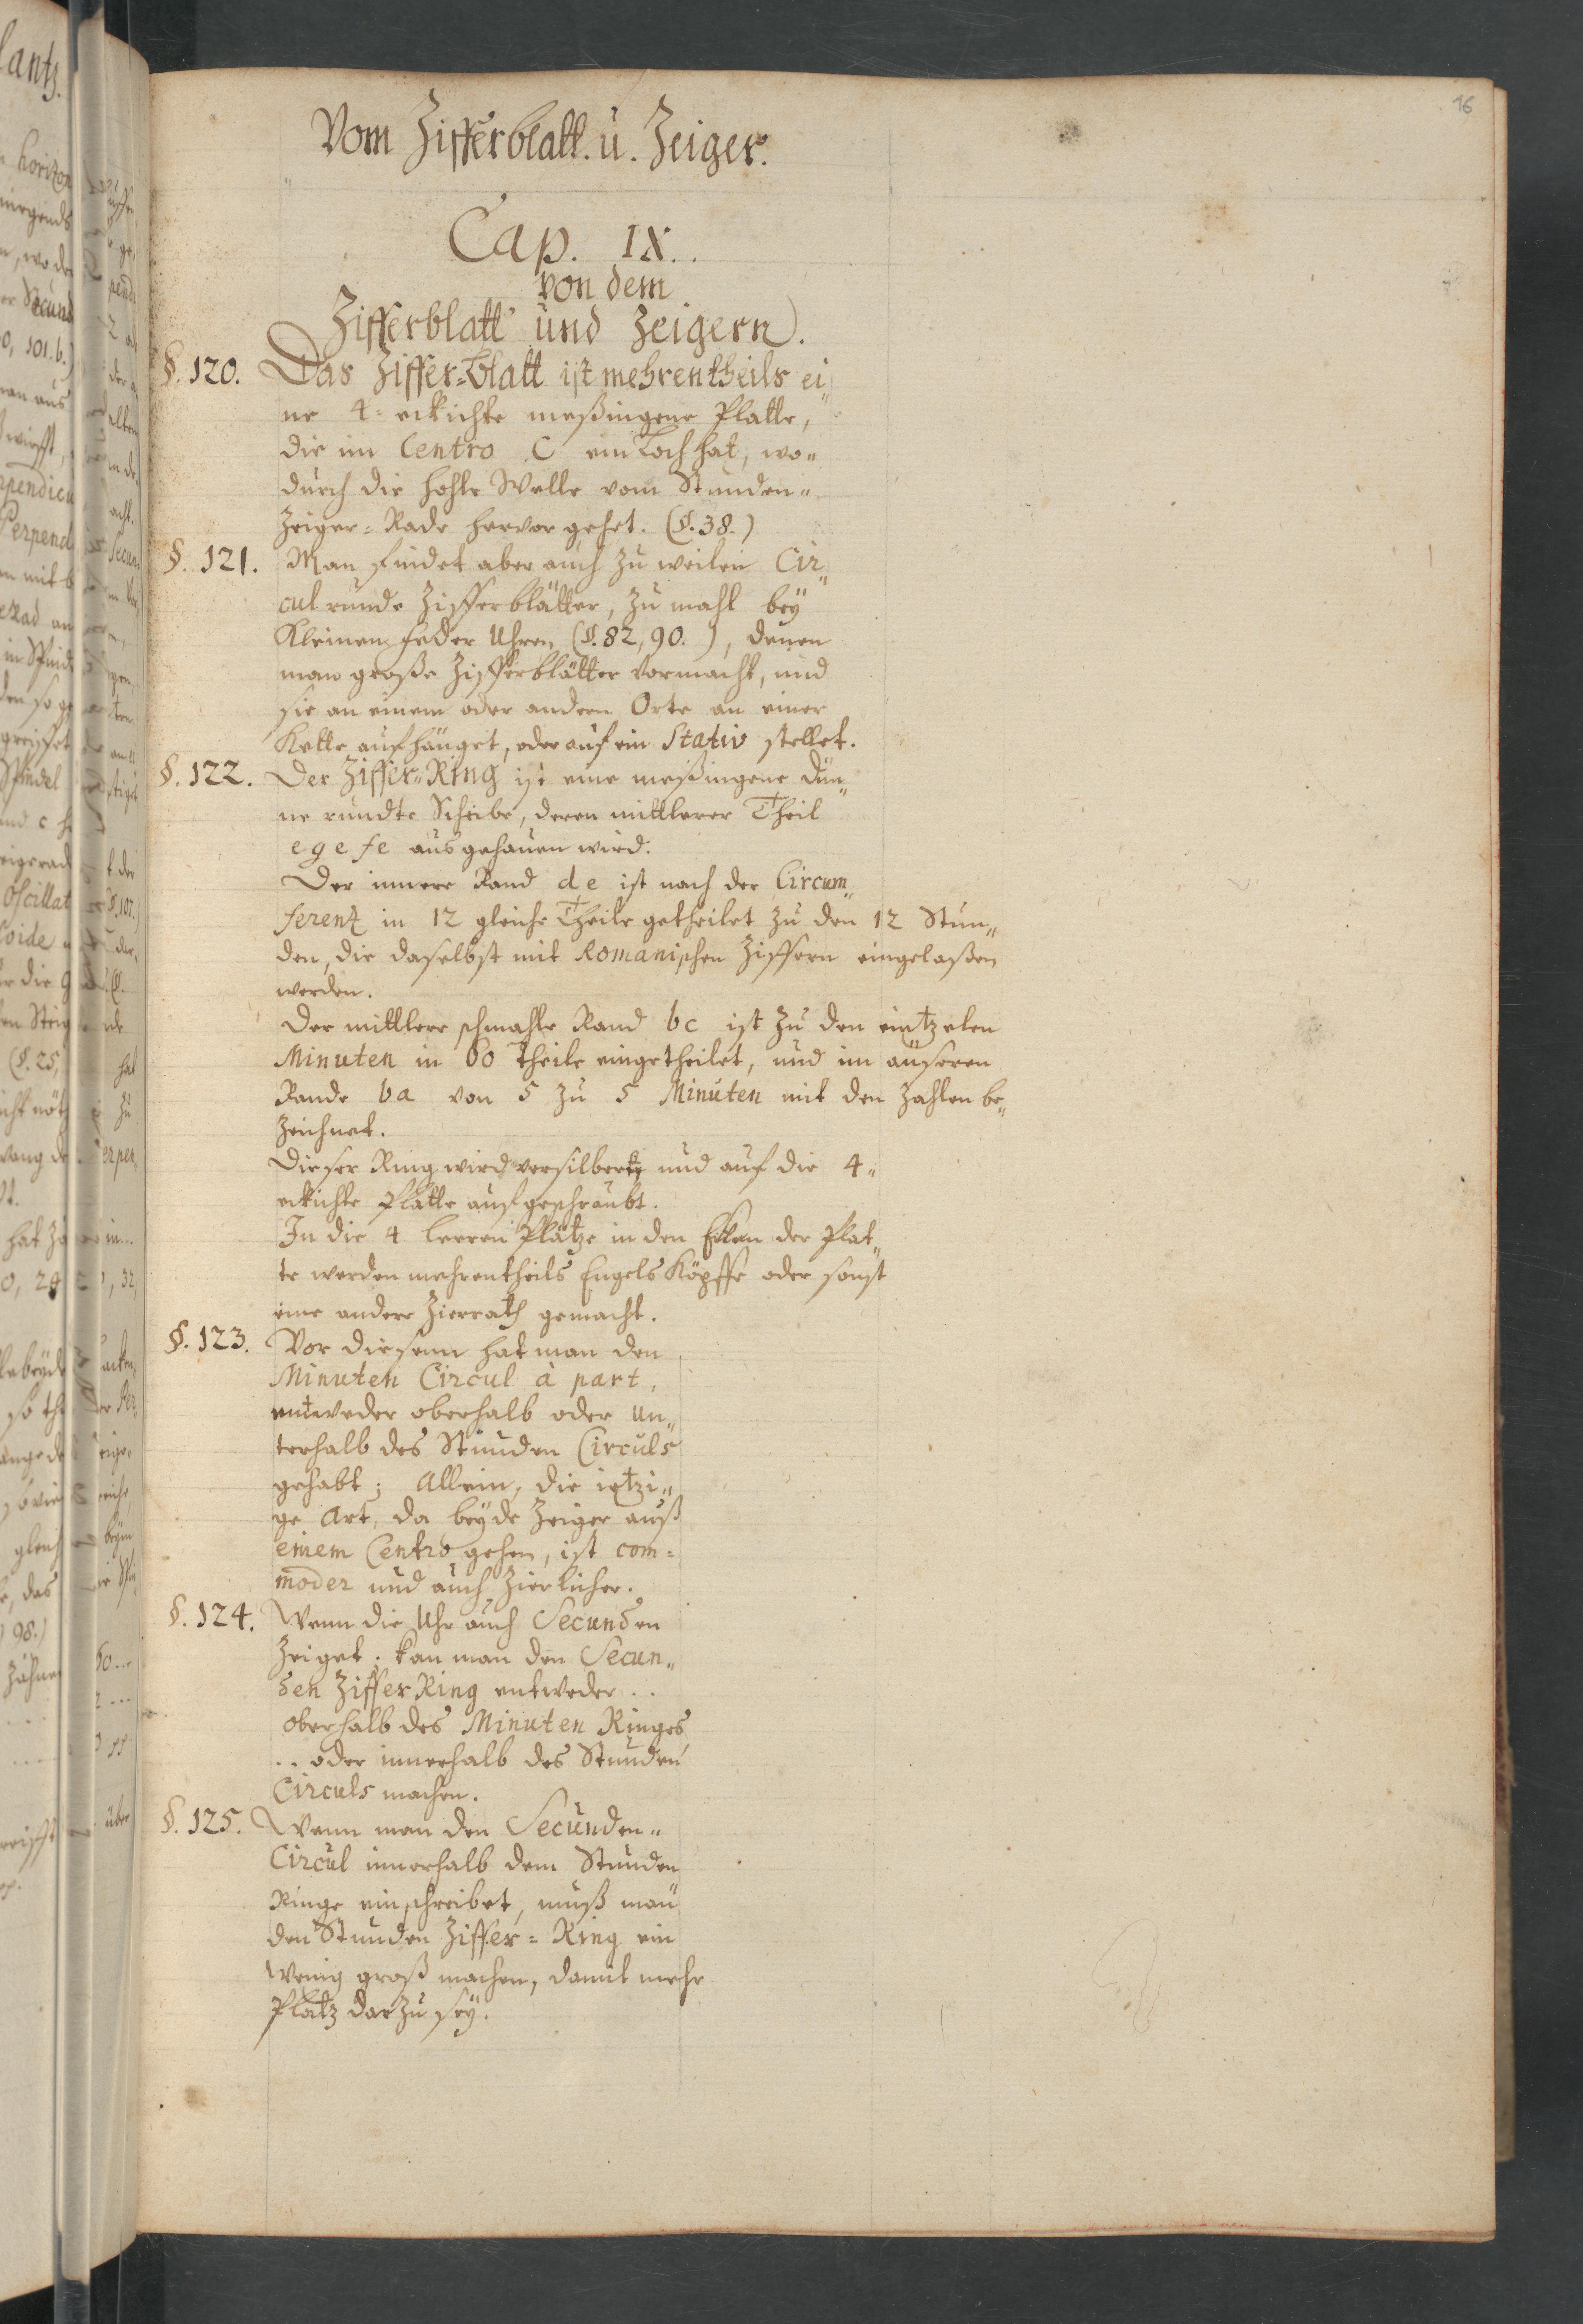 16
Vom Zifferblatt. u. Zeiger.
Cap. IX.
von dem
Zifferblatt und Zeigern.
§. 120. Das Ziffer=blatt ist mehrentheils ei„
ne 4=eckichte meßingene Platte,
die im Centro C ein Loch hat, wo„
durch die hohle Welle vom Stunden„
Zeiger=Rade hervor gehet. (§. 38.)
§. 121. Man findet aber auch zu weilen Cir„
cul runde Zifferblätter, zu mahl bey
Kleinen feder Uhren (§. 82, 90. ), denen
man große Zifferblätter vormacht, und
sie an einem oder andern Orte an einer
Kette aufhänget, oder auf ein Stativ stellet.
§. 122. Der Ziffer=Ring ist eine meßingene dün„
ne runde Scheibe, deren mittlerer Theil
e g e f e ausgehauen wird.
Der innere Rand d e ist nach der Circum„
ferenz in 12 gleiche Theile getheilet zu den 12 Stun„
den, die daselbst mit Romanischen Ziffern eingelaßen
werden.
Der mittlere schmahle Rand bc ist zu den eintzelen
Minuten in 60 Theile eingetheilet, und im äuseren
Rande ba von 5 zu 5 Minuten mit den Zahlen be„
zeichnet.
Dieser Ring wird versilbert und auf die 4„
eckichte Platte aufgeschraubt.
In die 4 leeren Plätze in den Ecken der Plat„
te werden mehrentheils Engels Köpffe oder sonst
eine andere Zierrath gemacht.
§. 123. Vor diesem hat man den
Minuten Circul à part,
entweder oberhalb oder un„
terhalb des Stunden Circuls
gehabt; Allein, die ietzi„
ge Art, da beyde Zeiger auß
einem Centro gehen, ist com=
moder und auch zierlicher.
§. 124. Wenn die Uhr auch Secunden
Zeiget; kan man den Secun„
den Ziffer Ring entweder . .
oberhalb des Minuten Ringes
. . oder innerhalb des Stunden
Circuls machen.
§. 125. Wenn man den Secunden„
Circul innerhalb dem Stunden
Ringe einschreibet, muß man
den Stunden Ziffer=Ring ein
wenig groß machen, damit mehr
Platz darzu sey.